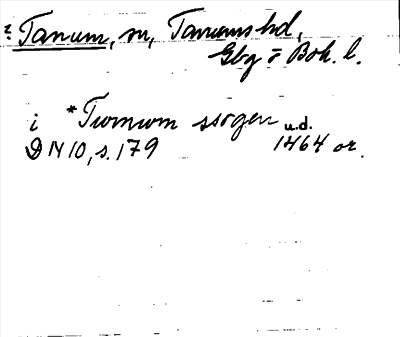 ? Tanum, sn, Tanums hd,
Gbg o Boh. l.
i *Twmwm ssogen u.d.
DN 10, s. 179 1464 or.